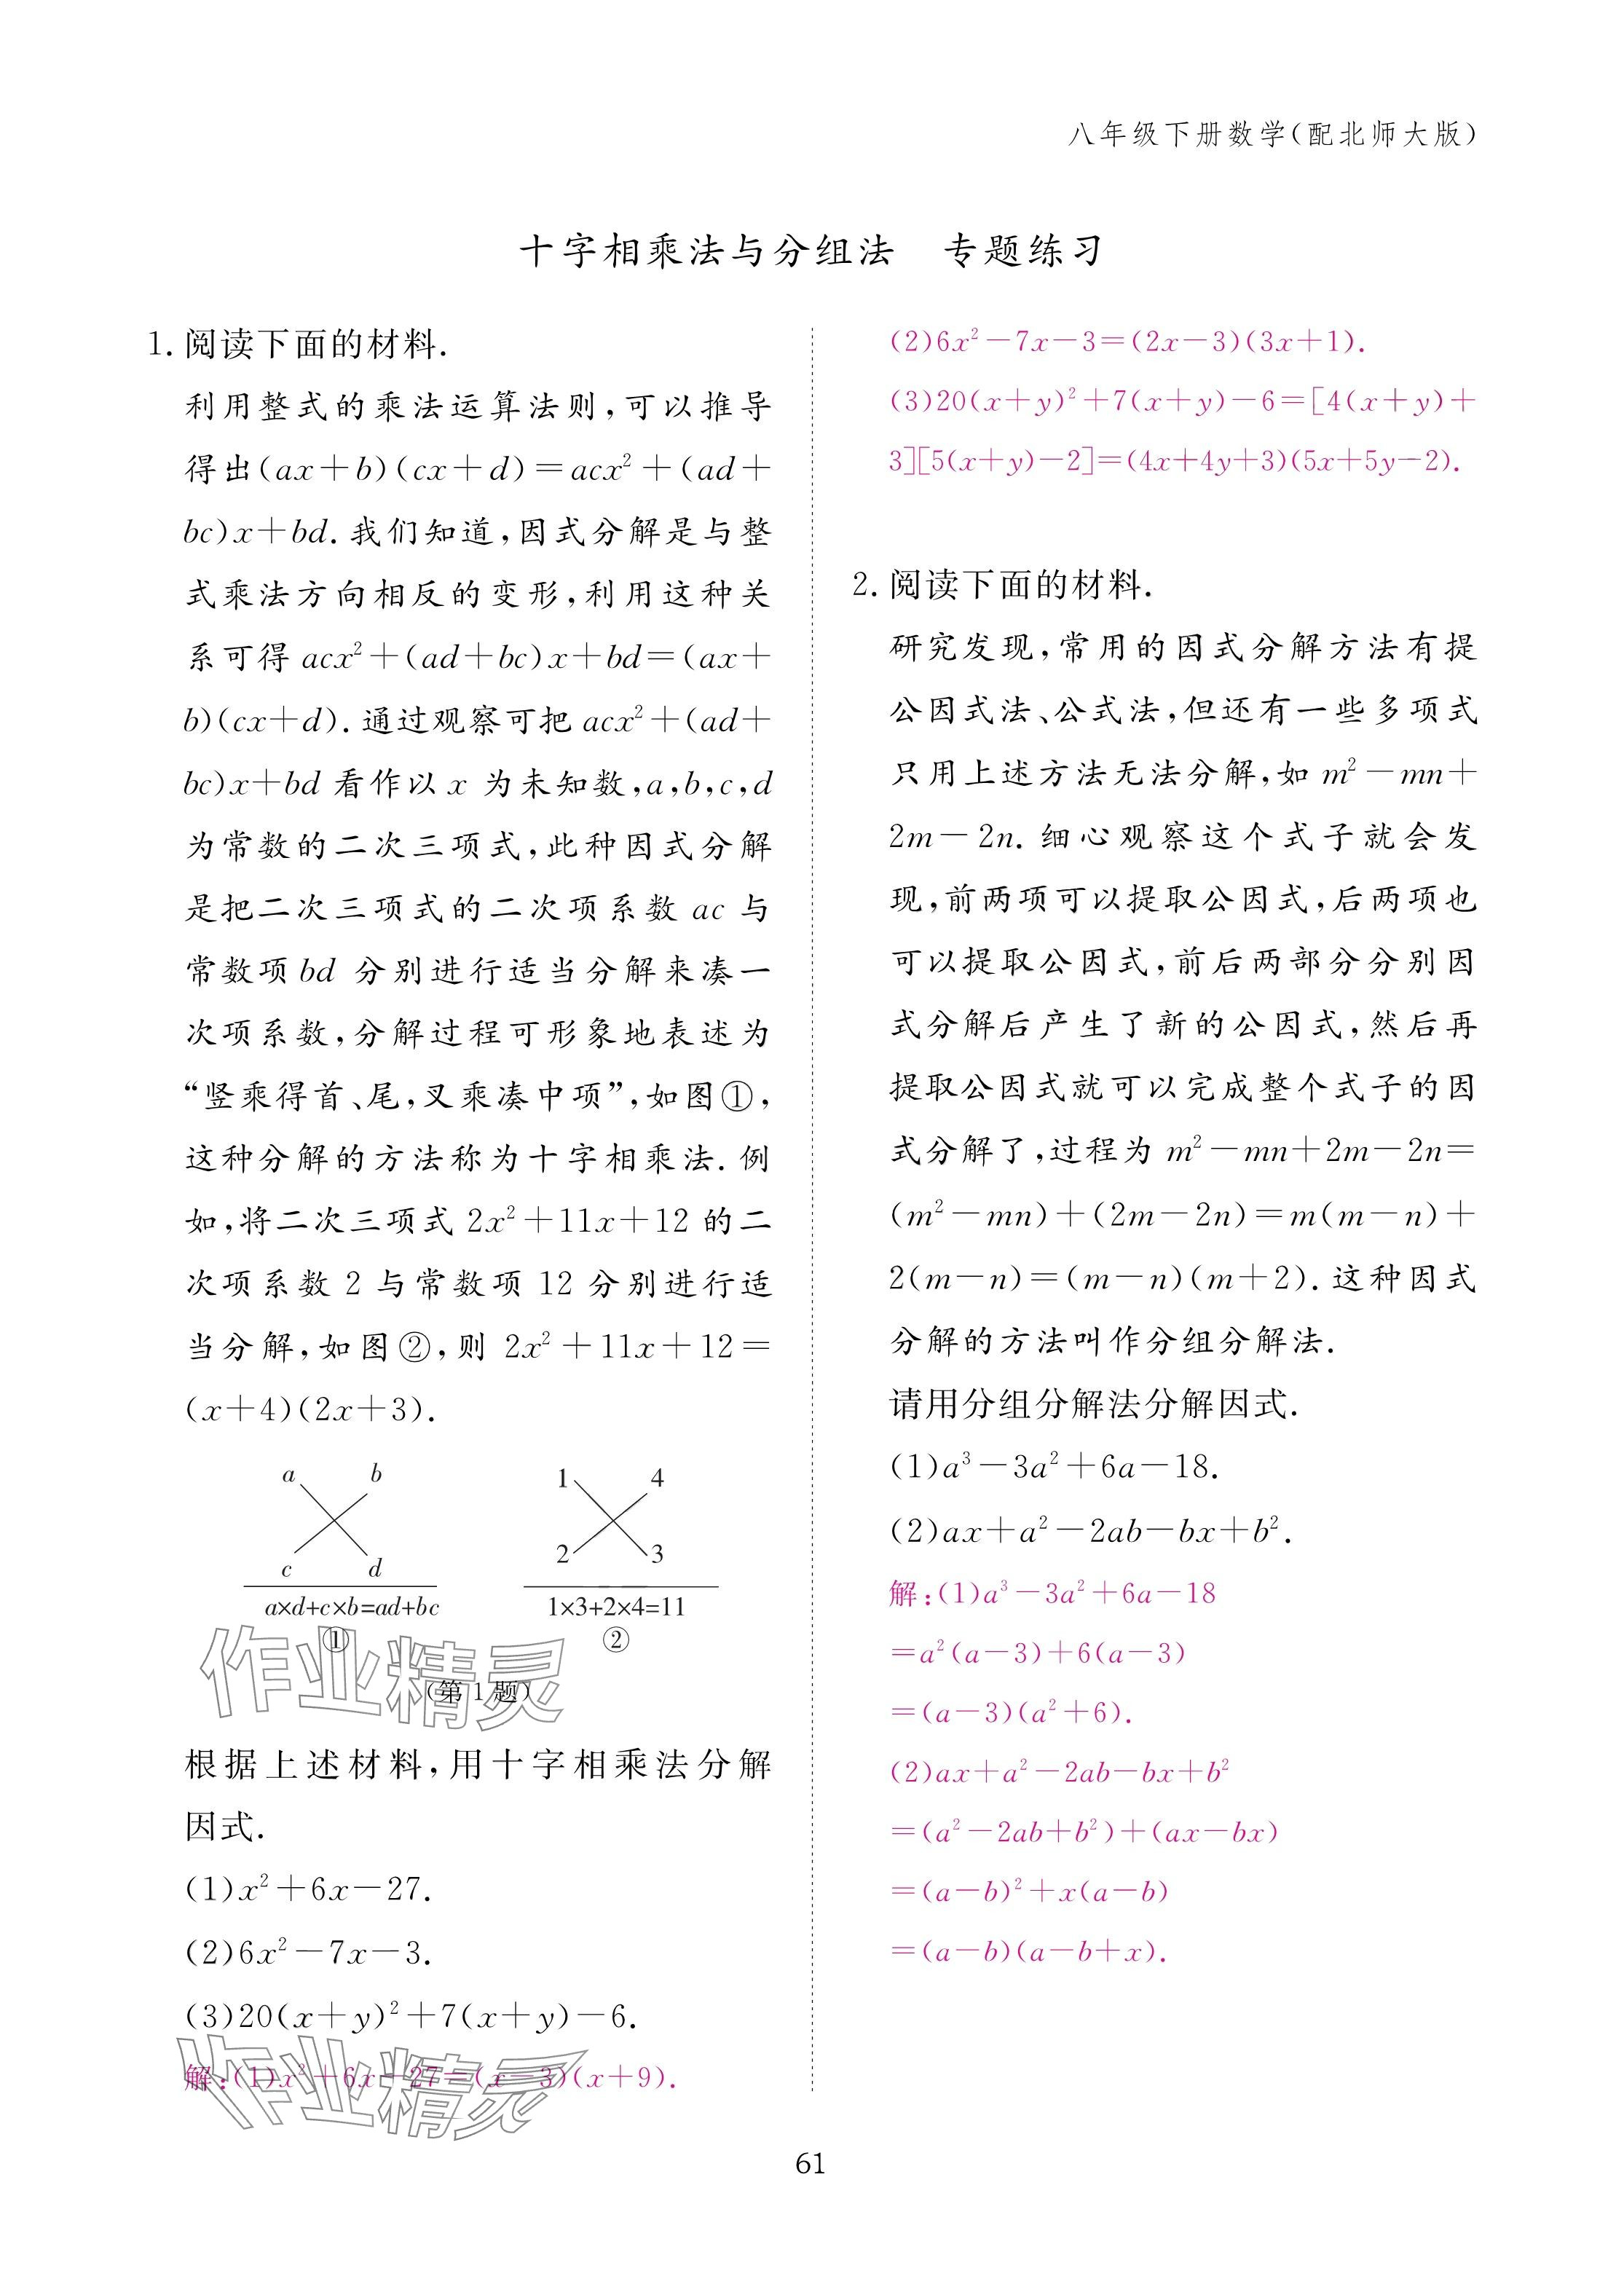 八年级下册数学(配北师大版)
十字相乘法与分组法　专题练习
1. 阅读下面的材料.
利用整式的乘法运算法则,可以推导
得出(ax+b)(cx+d)=acx²+(ad+
bc)x+bd. 我们知道,因式分解是与整
式乘法方向相反的变形,利用这种关
系可得 acx²+(ad+bc)x+bd=(ax+
b)(cx+d). 通过观察可把 acx²+(ad+
bc)x+bd 看作以 x 为未知数,a,b,c,d
为常数的二次三项式,此种因式分解
是把二次三项式的二次项系数 ac 与
常数项 bd 分别进行适当分解来凑一
次项系数,分解过程可形象地表述为
“竖乘得首、尾,叉乘凑中项”,如图①,
这种分解的方法称为十字相乘法. 例
如,将二次三项式 2x²+11x+12 的二
次项系数 2 与常数项 12 分别进行适
当分解,如图②,则 2x²+11x+12=
(x+4)(2x+3).
a b
c d
a×d+c×b=ad+bc
①
1 4
2 3
1×3+2×4=11
②
(第 1 题)
根据上述材料,用十字相乘法分解
因式.
(1)x²+6x-27.
(2)6x²-7x-3.
(3)20(x+y)²+7(x+y)-6.
解:(1)x²+6x-27=(x-3)(x+9).
(2)6x²-7x-3=(2x-3)(3x+1).
(3)20(x+y)²+7(x+y)-6=[4(x+y)+
3][5(x+y)-2]=(4x+4y+3)(5x+5y-2).
2. 阅读下面的材料.
研究发现,常用的因式分解方法有提
公因式法、公式法,但还有一些多项式
只用上述方法无法分解,如 m²-mn+
2m-2n. 细心观察这个式子就会发
现,前两项可以提取公因式,后两项也
可以提取公因式,前后两部分分别因
式分解后产生了新的公因式,然后再
提取公因式就可以完成整个式子的因
式分解了,过程为 m²-mn+2m-2n=
(m²-mn)+(2m-2n)=m(m-n)+
2(m-n)=(m-n)(m+2). 这种因式
分解的方法叫作分组分解法.
请用分组分解法分解因式.
(1)a³-3a²+6a-18.
(2)ax+a²-2ab-bx+b².
解:(1)a³-3a²+6a-18
=a²(a-3)+6(a-3)
=(a-3)(a²+6).
(2)ax+a²-2ab-bx+b²
=(a²-2ab+b²)+(ax-bx)
=(a-b)²+x(a-b)
=(a-b)(a-b+x).
作业精灵
作业精灵
61